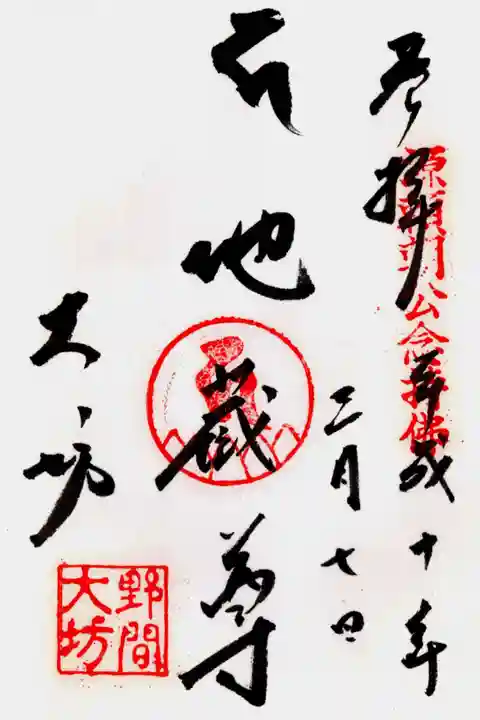 奉拝
平成十年
三月七日
源頼朝公念持佛
地蔵尊
大坊
野間
大坊